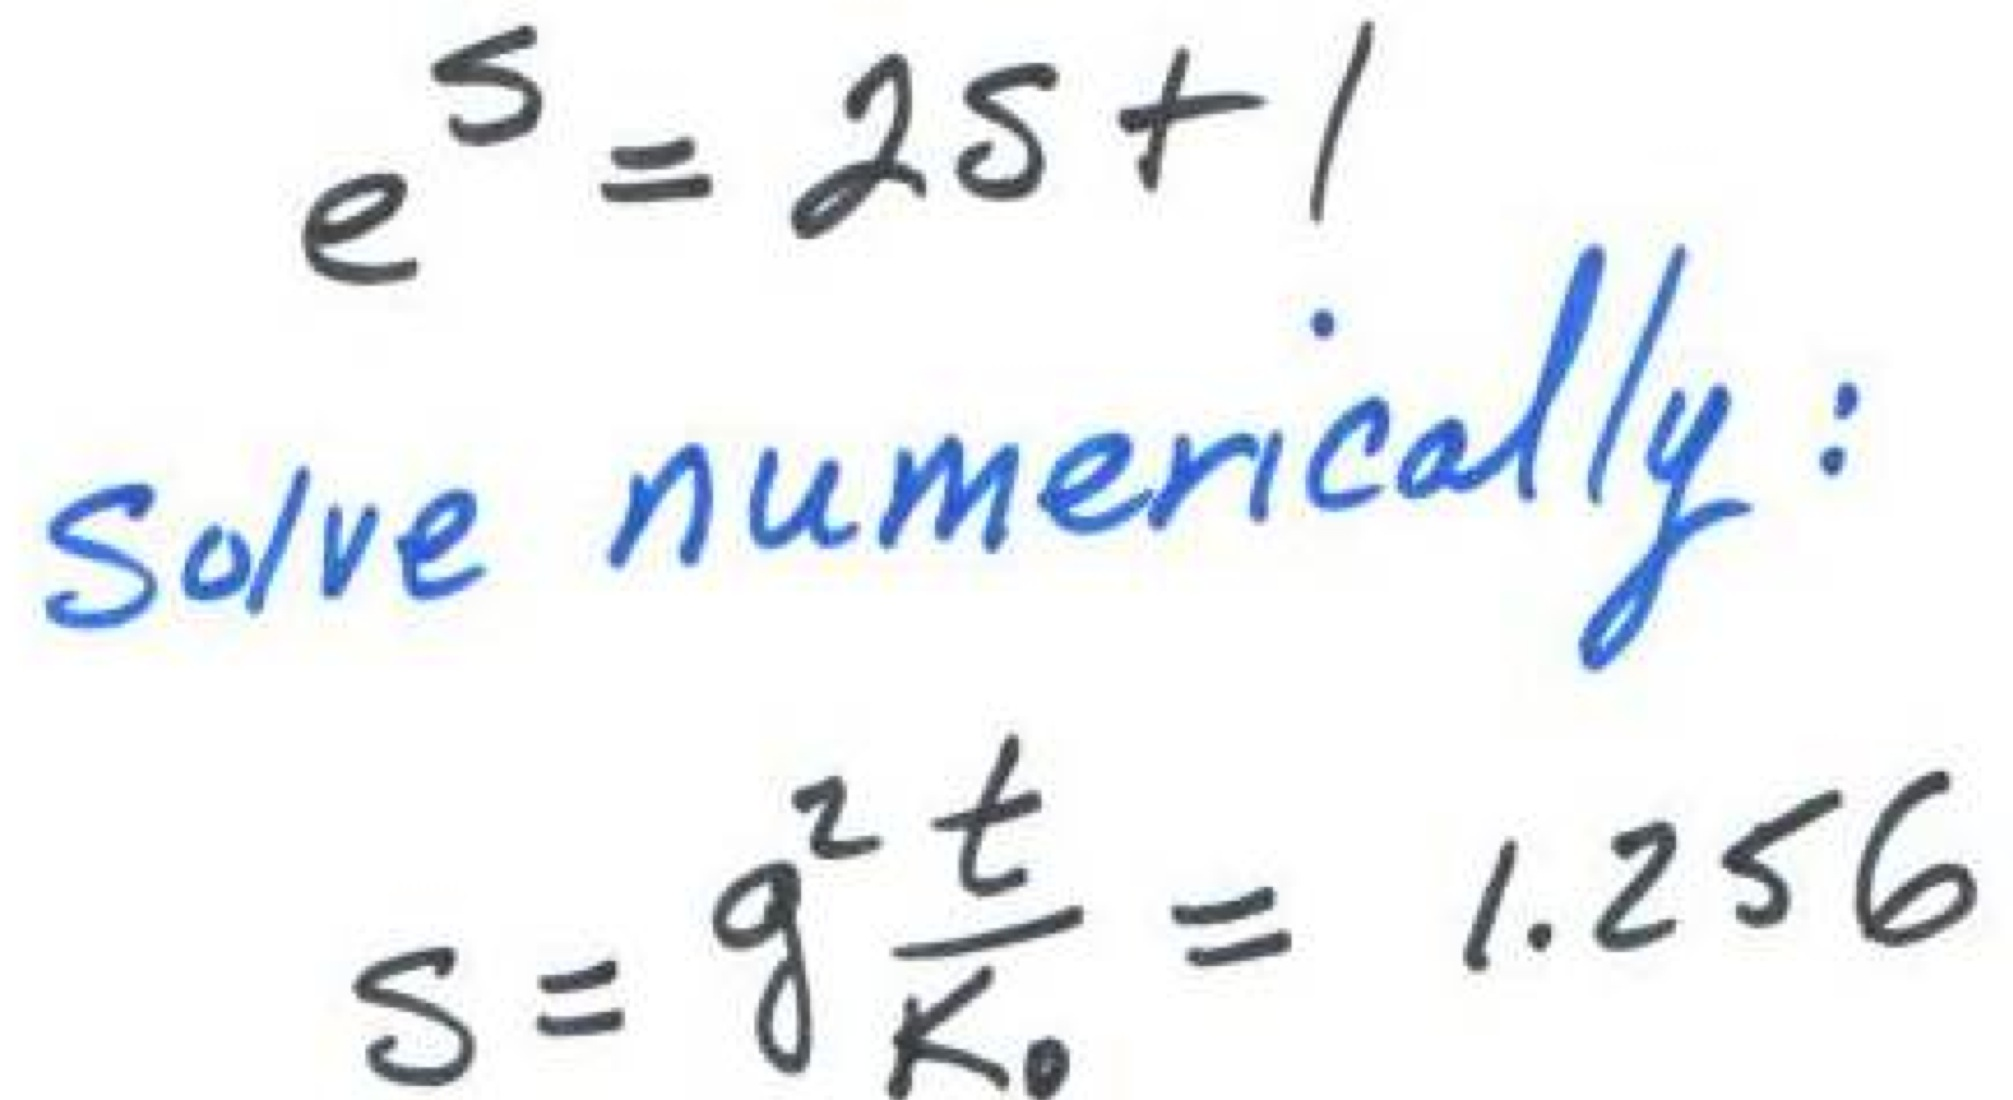 e^s = 2s + 1
Solve numerically:
s = g² t/K₀ = 1.256